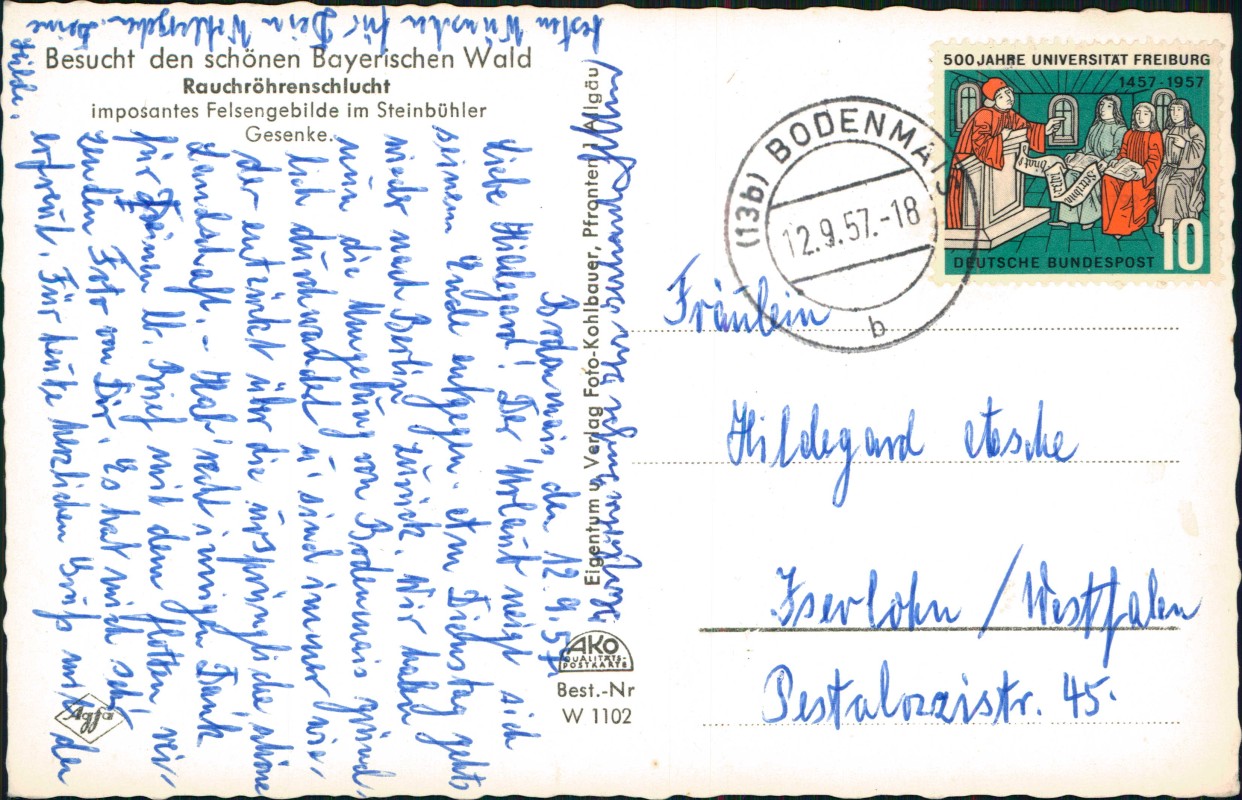 Besucht den schönen Bayerischen Wald
Rauchröhrenschlucht
imposantes Felsengebilde im Steinbühler
Gesenke.
Bodenmais, den 12.9.57.
Liebe Hildegard! Der Urlaub neigt sich
seinem Ende entgegen. Am Dienstag gehts
wieder nach Berlin zurück. Wir haben
nun die Umgebung von Bodenmais gründ-
lich durchwandert u. sind immer wie-
der entzückt über die ursprüngliche schöne
Landschaft. - Hab' recht innigen Dank
für Deinen lb. Brief mit dem flotten, rei-
zenden Foto von Dir. Es hat mich sehr
erfreut. Für heute herzlichen Gruß mit den
besten Wünschen für Dein Wohlergehen. Deine
Hilde.
Herzliche Grüße Ihr
Eigentum u. Verlag Foto-Kohlbauer, Pfronten i. Allgäu
AKO
QUALITÄTS-
POSTKARTE
Best.-Nr
W 1102
Agfa
500 JAHRE UNIVERSITÄT FREIBURG
1457-1957
DEUTSCHE BUNDESPOST 10
(13b) BODENMAIS
12.9.57.-18
b
Fräulein
Hildegard
Iserlohn / Westfalen
Pestalozzistr. 45.